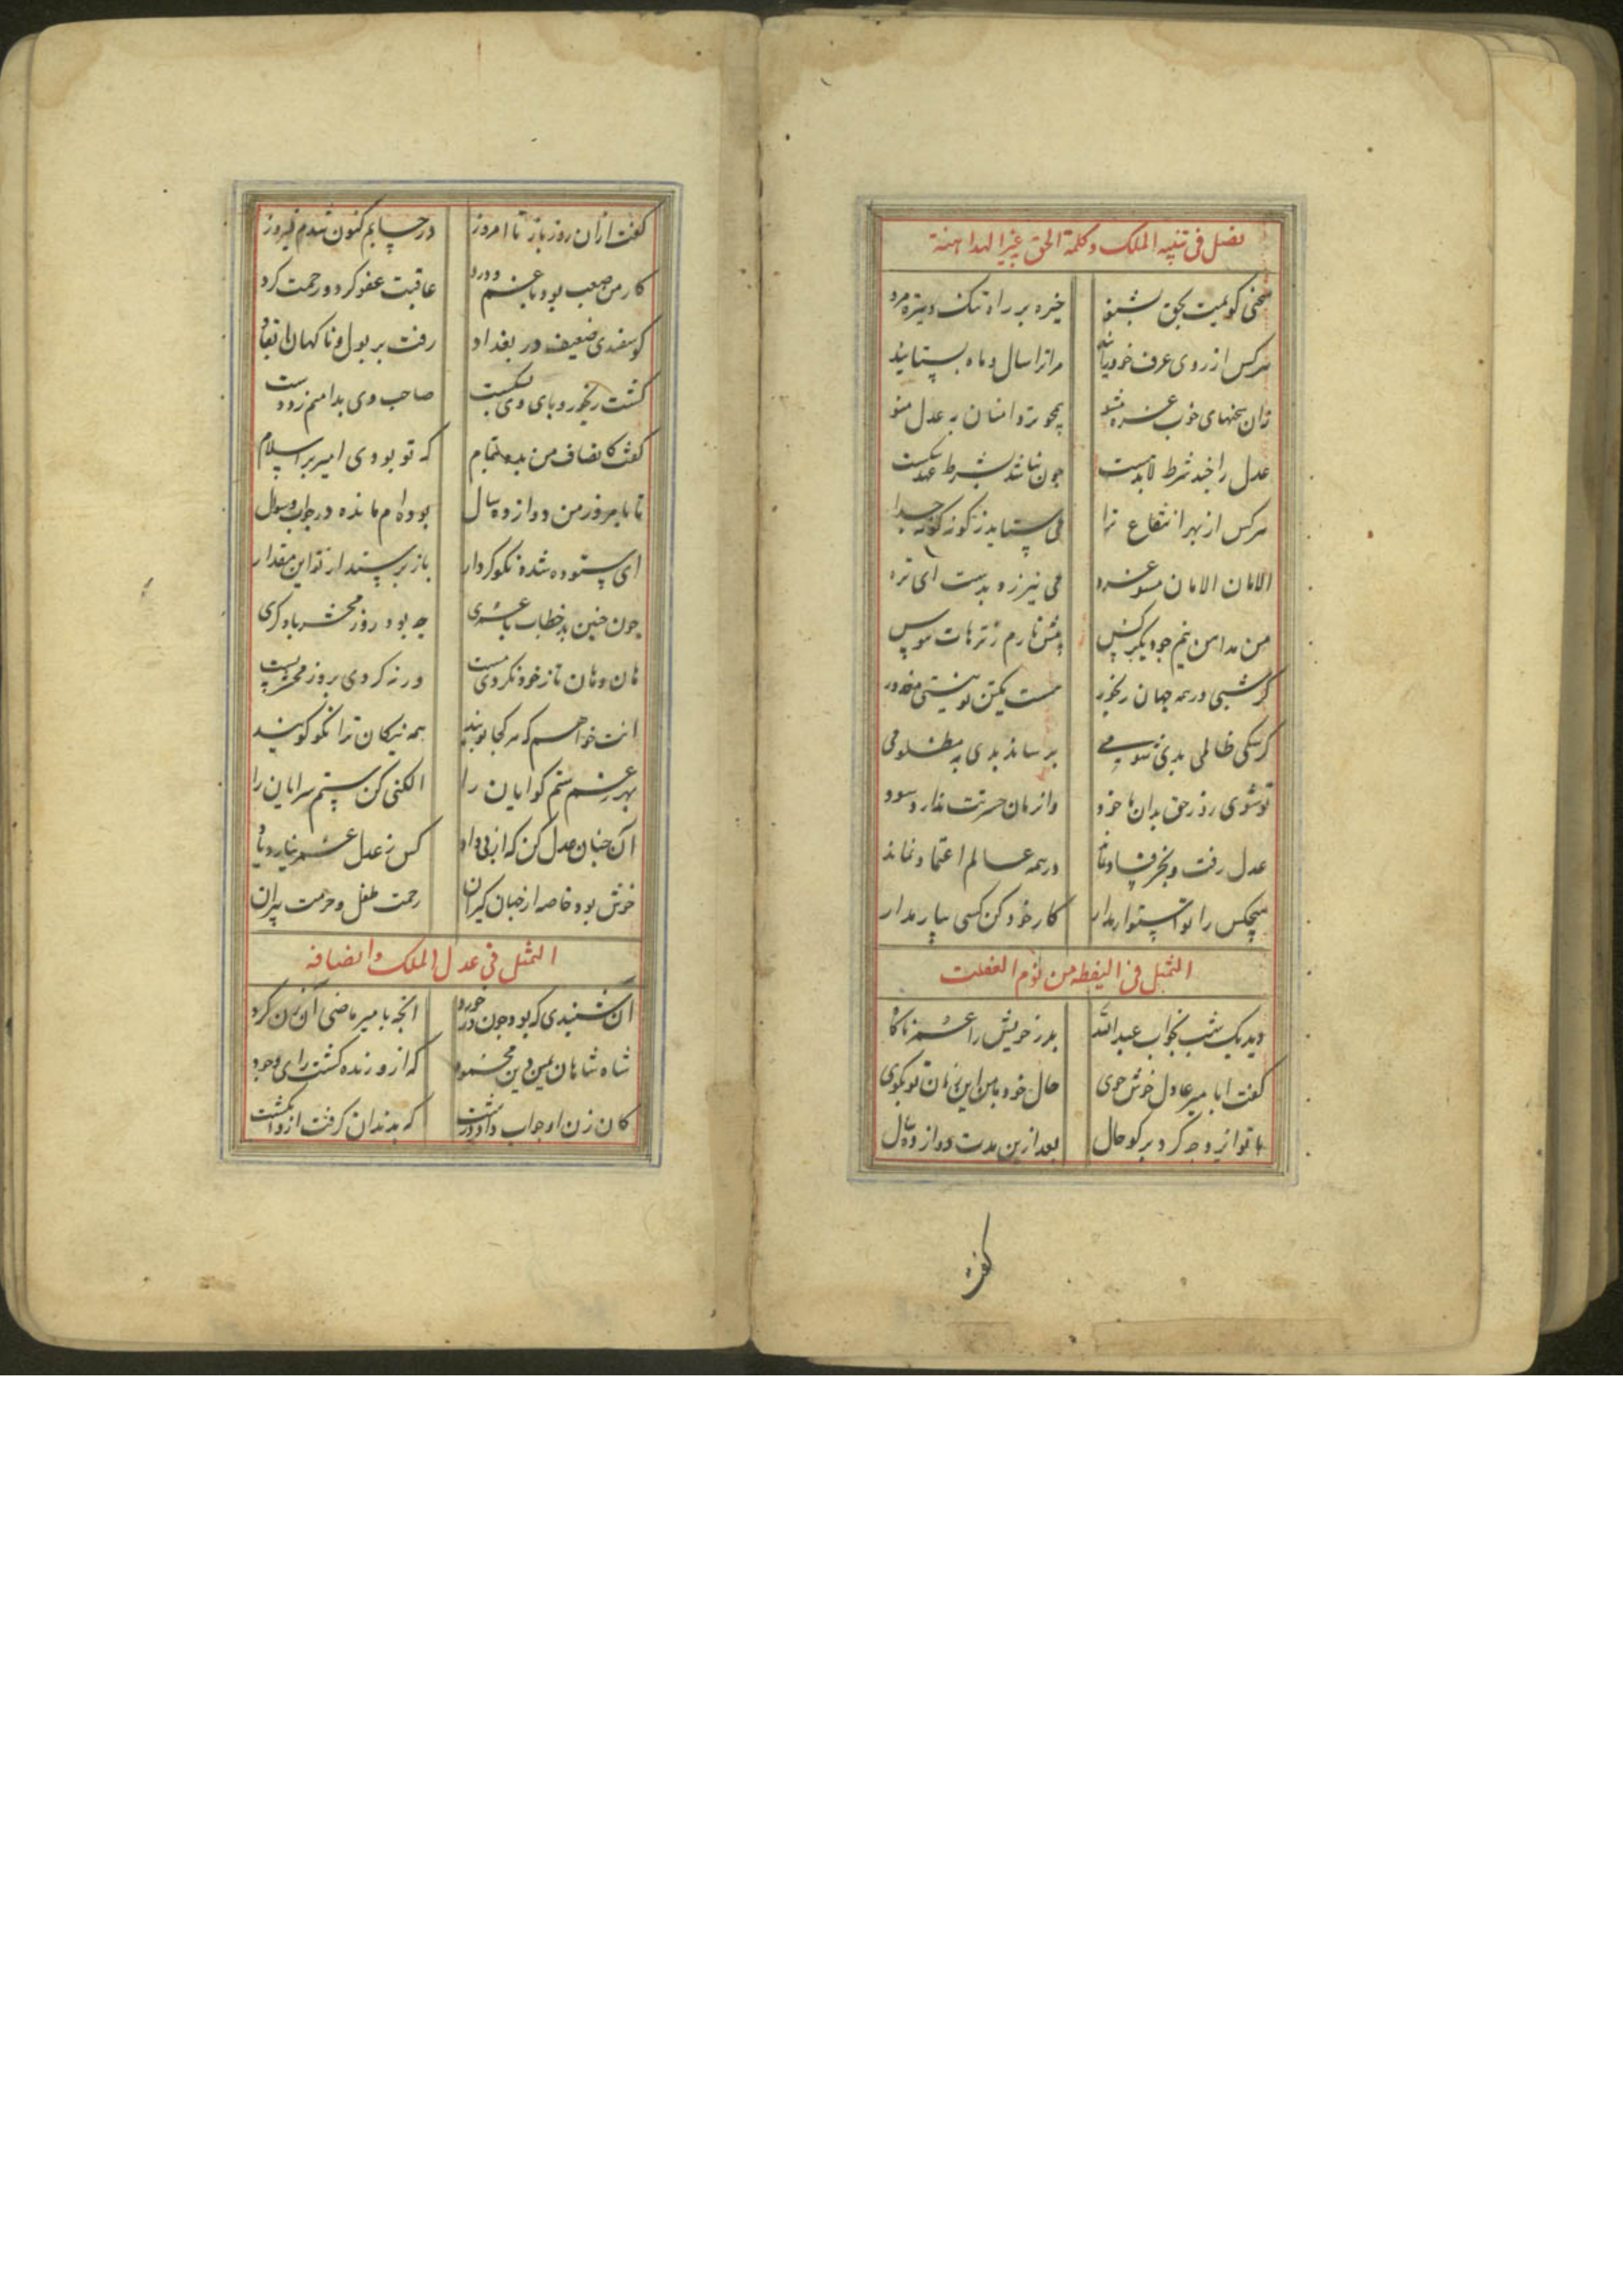 فصل فی تنبیه الملک و کلمة الحق غیر المداهنة
سخنی گویمت بحق بشنو خیره بر راه تنک و تیره مرو
هرکس از روی عرف خود مر ترا سال و ماه بستایند
زان سخنهای خوب غره مشو همچو تر دامنان به عدل منو
عدل را چند شرط لابدست چون نماند بشرط
هرکس از بهر انتفاع ترا می ستاید ز گونه گونه جدا
الامان الامان مشو غره می نیرزد بدست ای تره
من مداهن نیم چو دیگر کس پیش نارم ز ترهات هوس
گر شبی در همه جهان رنجور هست یکتن تو نیستی معذور
گر سگی ظالمی بدی شومی برساند بدی به مظلومی
تو شوی روز حق بدان ماخوذ وان زمان حسرتت ندارد سود
عدل رفت و بجز فساد نماند در همه عالم اعتماد نماند
هیچکس را تو استوار مدار کار خود کن کسی بیار مدار
التمثل فی الیقظه من نوم الغفلت
دید یک شب بخواب عبدالله پدر خویش را عمر ناگاه
گفت ایا میر عادل خوش خوی حال خود با من این زمان تو بگوی
با تو ایزد چه کرد برگو حال بعد ازین مدت دوازده سال
گفت
گفت ازان روز باز تا امروز در حسابم کنون شدم فیروز
کار من صعب بود با غم و درد عاقبت عفو کرد و رحمت کرد
گوسفندی ضعیف در بغداد رفت بر پول و ناگهان افتاد
گشت رنجور و پای وی بشکست صاحب وی بدامنم زد دست
گفت کانصاف من بده بتمام که تو بودی امیر بر اسلام
تا بامروز من دوازده سال بوده‌ام مانده در جواب و سوال
ای ستوده شده نکو کردار باز پرسند از تو این مقدار
چون چنین بد خطاب با عمری چه بود روز محشر با دگری
هان و هان تا ز خود نگردی مست ورنه گردی بروز محشر پست
انت خواهم که هر کجا پویند همه نیکان ترا نکو گویند
بهر غم ستم گوایان را الکنی کن ستم سرایان را
آن چنان عدل کن که از پی داد کس ز عدل عمر نیارد یاد
خوش بود خاصه از جهان گیران رحمت طفل و حرمت پیران
التمثل فی عدل الملک و انصافه
آن شنیدی که بود چون در خورد انچه با میر ماضی آن زن کرد
شاه شاهان یمین دین محمود که ازو زنده گشت رای وجود
کان زن او را جواب داد درشت که بدندان گرفت ازو انگشت